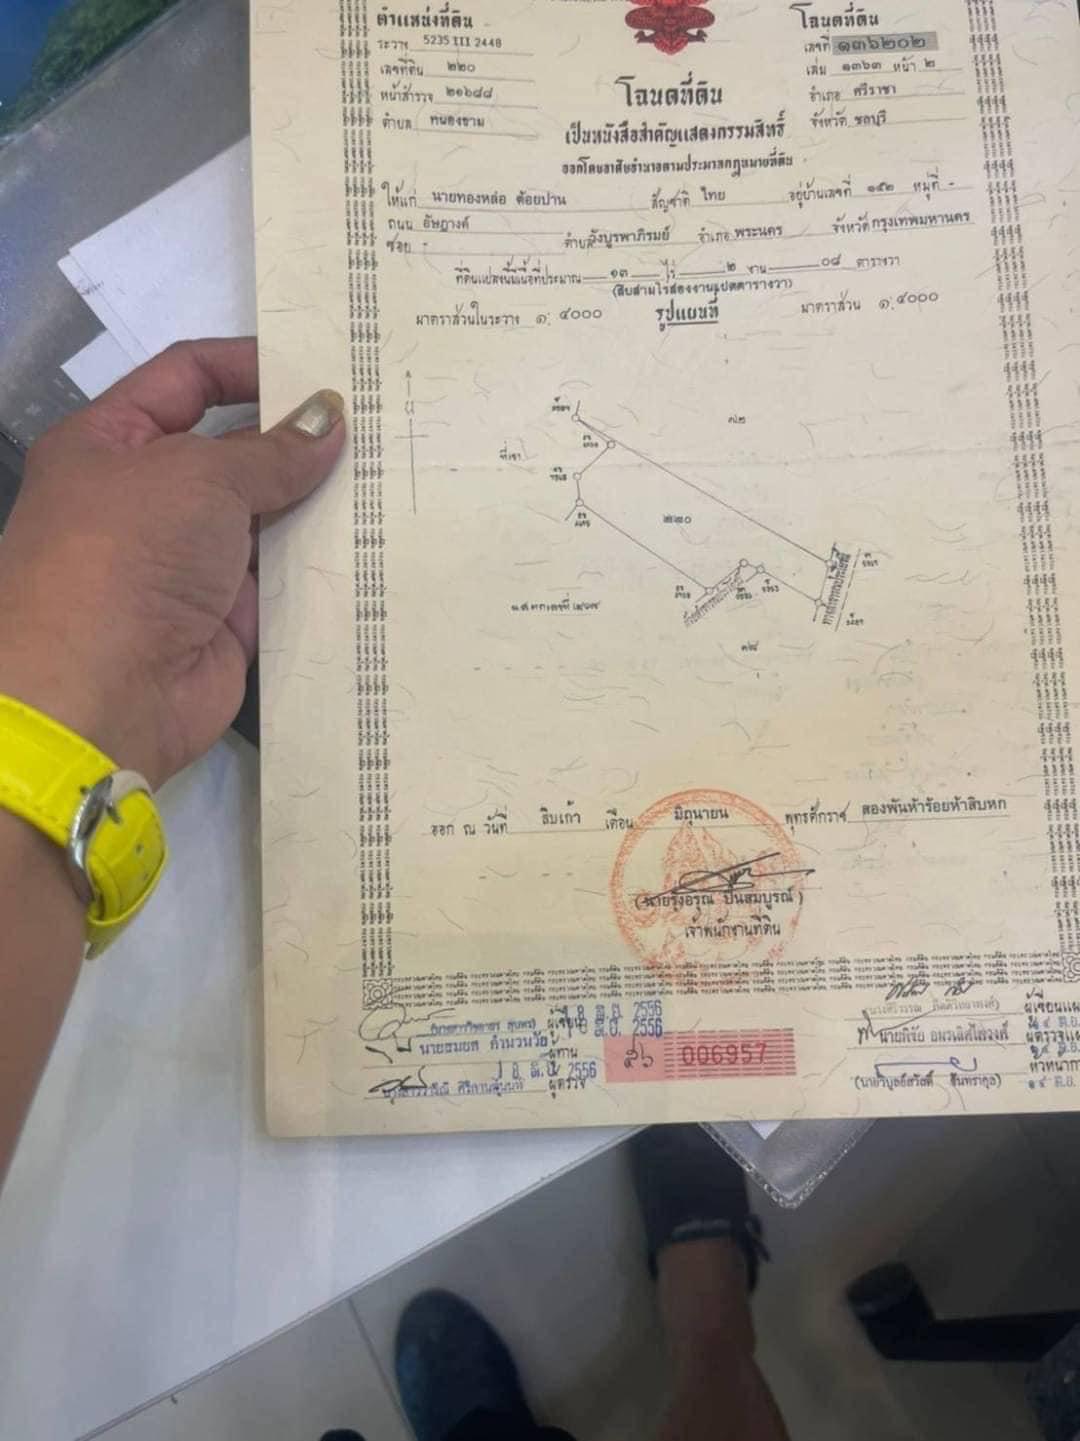 ตำแหน่งที่ดิน
ระวาง 5235 III 2448
เลขที่ดิน ๒๒๐
หน้าสำรวจ ๒๑๖๘๘
ตำบล หนองขาม
โฉนดที่ดิน
เลขที่ ๑๓๖๒๐๒
เล่ม ๑๓๖๓ หน้า ๒
อำเภอ ศรีราชา
จังหวัด ชลบุรี
โฉนดที่ดิน
เป็นหนังสือสำคัญแสดงกรรมสิทธิ์
ออกโดยอาศัยอำนาจตามประมวลกฎหมายที่ดิน
ให้แก่ นายทองหล่อ ต้อยปาน สัญชาติ ไทย อยู่บ้านเลขที่ ๑๕๒ หมู่ที่ -
ถนน อัษฎางค์
ซอย - ตำบล วังบูรพาภิรมย์ อำเภอ พระนคร จังหวัด กรุงเทพมหานคร
ที่ดินแปลงนี้มีเนื้อที่ประมาณ ๑๓ ไร่ ๒ งาน ๐๘ ตารางวา
(สิบสามไร่สองงานแปดตารางวา)
มาตราส่วนในระวาง ๑: ๔๐๐๐ รูปแผนที่ มาตราส่วน ๑: ๔๐๐๐
น
๗๒
ที่เขา
๒๒๐
ทางสาธารณประโยชน์
ทางสาธารณประโยชน์
๓๘
ออก ณ วันที่ สิบเก้า เดือน มิถุนายน พุทธศักราช สองพันห้าร้อยห้าสิบหก
(นายรุ่งอรุณ ปิ่นสมบูรณ์)
เจ้าพนักงานที่ดิน
ผู้เขียน 2556
2556
ผู้ทาน
2556
ผู้ตรวจ
006957